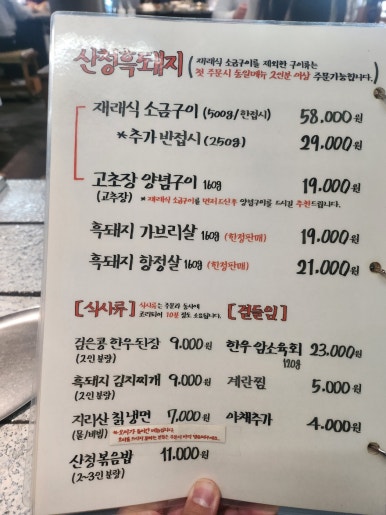 산청흑돼지 (재래식 소금구이를 제외한 구이류는
첫 주문시 동일메뉴 2인분 이상 주문가능합니다.)
재래식 소금구이 (500g/한접시) 58.000원
*추가 반접시 (250g) 29.000원
고추장 양념구이 160g 19.000원
(고추장) *재래식 소금구이를 먼저 드신 후 양념구이를 드시길 추천드립니다.
흑돼지 가브리살 160g (한정판매) 19.000원
흑돼지 항정살 160g (한정판매) 21.000원
[식사류] 식사류는 주문과 동시에
조리되어 10분 정도 소요됩니다.
[곁들임]
검은콩 한우된장 9.000원
(2인 분량)
흑돼지 김치찌개 9.000원
(2인 분량)
지리산 칡냉면 7.000원
(물/비빔)
산청볶음밥 11.000원
(2~3인 분량)
한우 암소육회 23.000원
120g
계란찜 5.000원
야채추가 4.000원